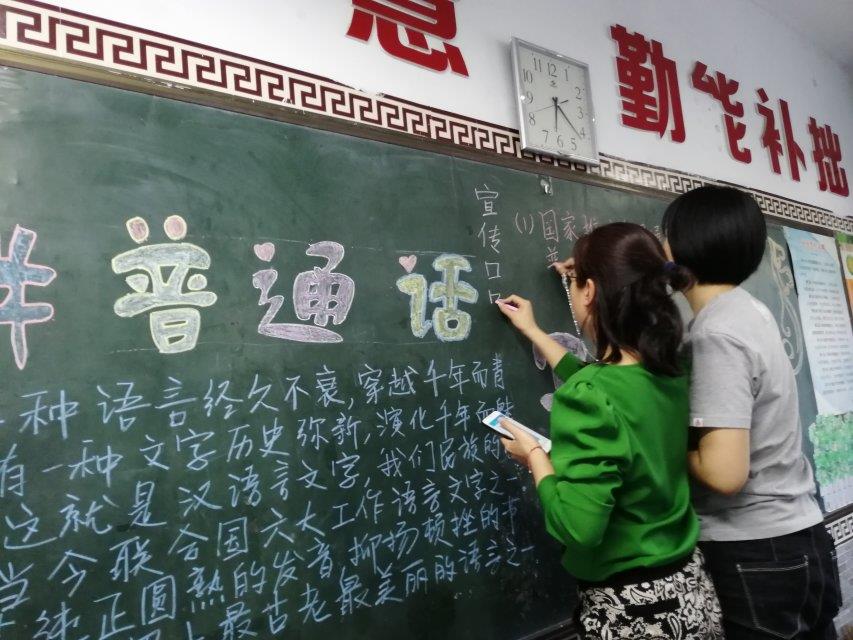 勤能补拙
普通话
宣传口
(1)国家
种语言经久不衰,穿越千年而青
有一种文字历史弥新,演化千年而
这就是汉语言文字,我们民族的
当今联合国六大工作语言文字之一
纯正圆熟的发音抑扬顿挫的中
上最古老最美丽的语言之一